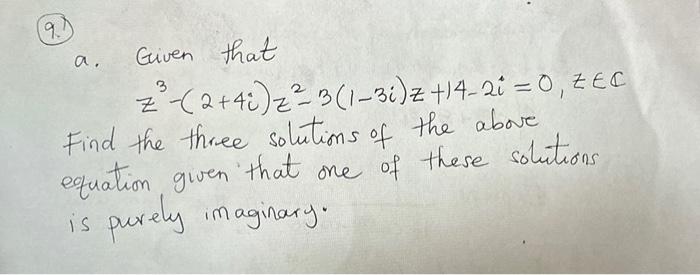 9.)
a. Given that
z³-(2+4i)z²-3(1-3i)z+14-2i=0, z∈ℂ
Find the three solutions of the above
equation given that one of these solutions
is purely imaginary.